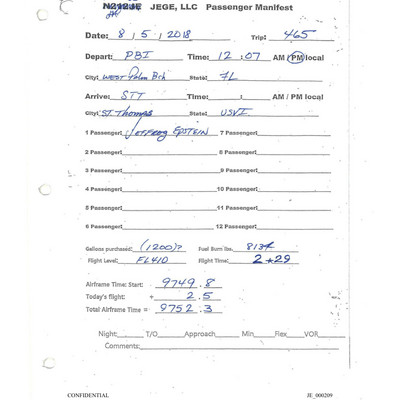 N212JE JEGE, LLC Passenger Manifest
Date: 8 / 5 / 2018 Trip: 465
Depart: PBI Time: 12 : 07 AM / PM local
City: WEST Palm Bch State: FL
Arrive: STT Time: : AM / PM local
City: ST Thomas State: USVI
1 Passenger: Jeffrey EPSTEIN 7 Passenger:
2 Passenger: 8 Passenger:
3 Passenger: 9 Passenger:
4 Passenger: 10 Passenger:
5 Passenger: 11 Passenger:
6 Passenger: 12 Passenger:
Gallons purchased: (1200)? Fuel Burn lbs. 8134
Flight Level: FL410 Flight Time: 2 + 29
Airframe Time: Start: 9749 . 8
Today's flight: + 2 . 5
Total Airframe Time = 9752 . 3
Night: T/O Approach Min Flex VOR
Comments:
CONFIDENTIAL JE_000209